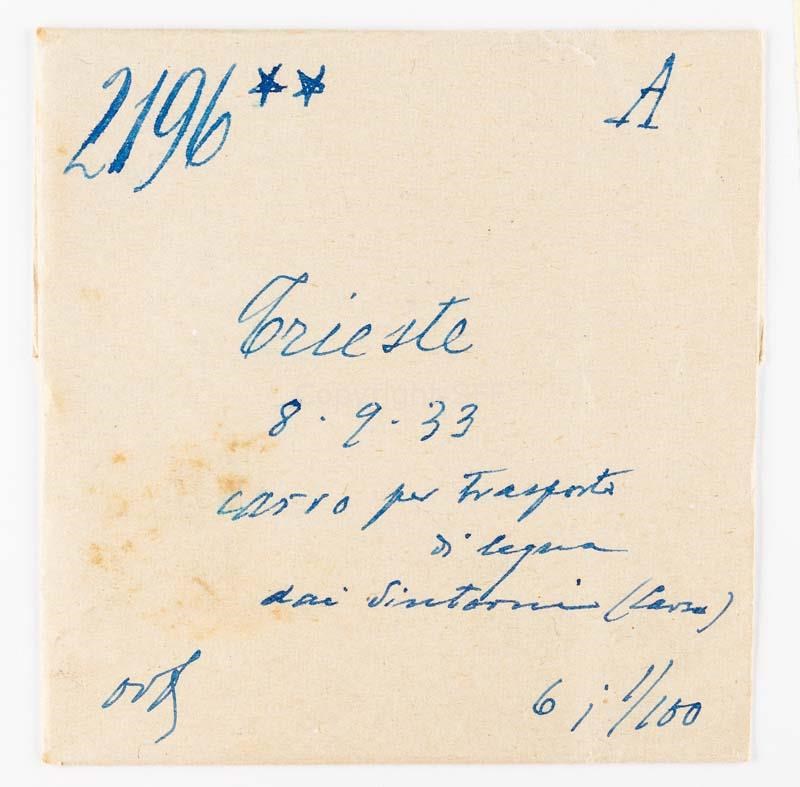 2196** A
Trieste
8 · 9 · 33
carro per trasporto
di legna
dai dintorni (Carso)
6 ; 1/100